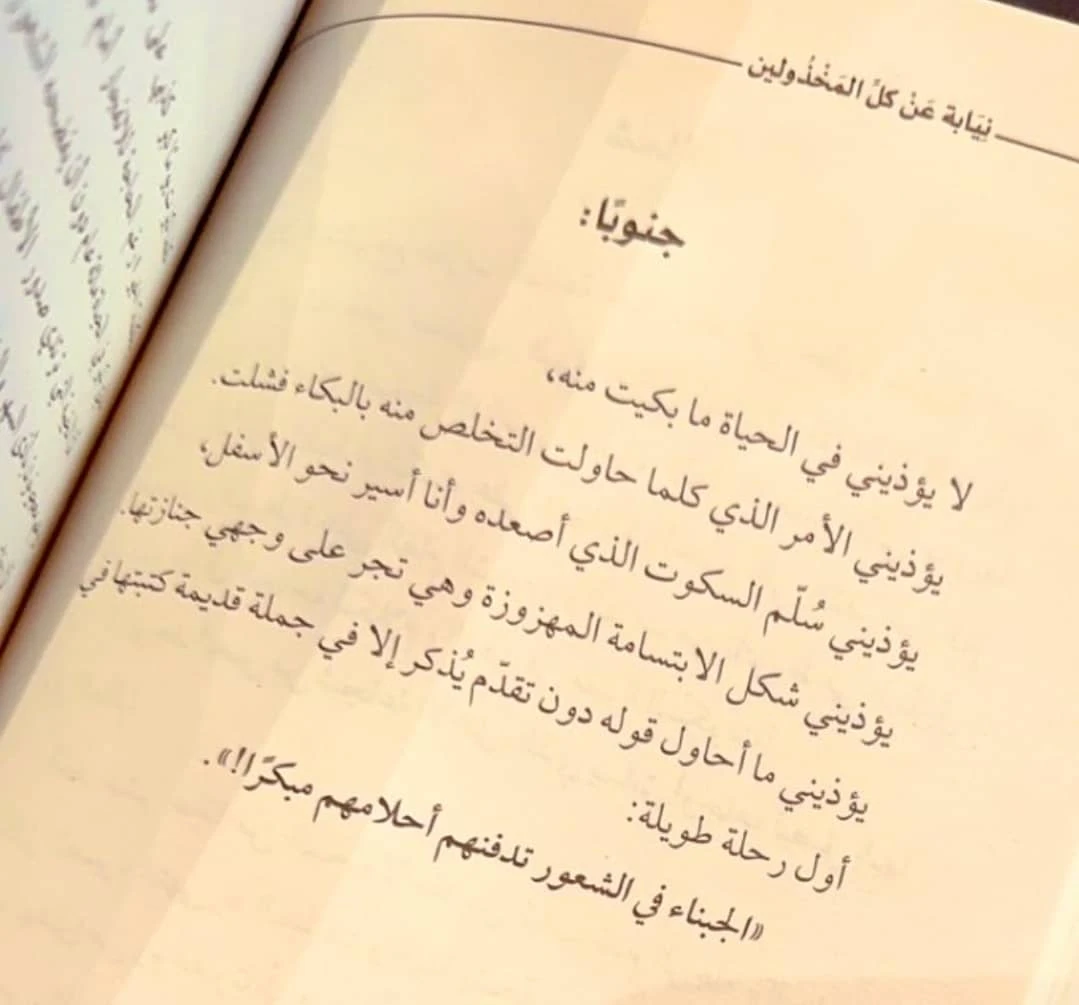 نِيَابة عَنْ كلِّ المَخْذُولين
جنوبًا:
لا يؤذيني في الحياة ما بكيت منه،
يؤذيني الأمر الذي كلما حاولت التخلص منه بالبكاء فشلت.
يؤذيني سُلّم السكوت الذي أصعده وأنا أسير نحو الأسفل،
يؤذيني شكل الابتسامة المهزوزة وهي تجر على وجهي جنازتها.
يؤذيني ما أحاول قوله دون تقدّم يُذكر إلا في جملة قديمة كتبتها في
أول رحلة طويلة:
«الجبناء في الشعور تدفنهم أحلامهم مبكرًا!».